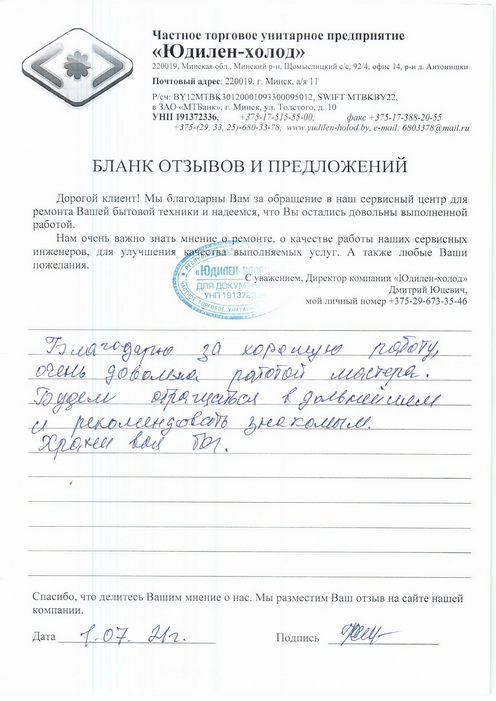 Частное торговое унитарное предприятие
«Юдилен-холод»
220019, Минская обл., Минский р-н, Щомыслицкий с/с, 92/4, офис 14, р-н д. Антонишки
Почтовый адрес: 220019, г. Минск, а/я 11
Р/сч: BY12MTBK30120001093300095012, SWIFT MTBKBY22,
в ЗАО «МТБанк», г. Минск, ул. Толстого, д. 10
УНП 191372336, +375-17-515-55-00, факс +375-17-388-20-55
+375-(29, 33, 25)-680-33-78, www.yudilen-holod.by, e-mail: 6803378@mail.ru
БЛАНК ОТЗЫВОВ И ПРЕДЛОЖЕНИЙ
Дорогой клиент! Мы благодарны Вам за обращение в наш сервисный центр для
ремонта Вашей бытовой техники и надеемся, что Вы остались довольны выполненной
работой.
Нам очень важно знать мнение о ремонте, о качестве работы наших сервисных
инженеров, для улучшения качества выполняемых услуг. А также любые Ваши
пожелания.
«Юдилен-холод»
ДЛЯ ДОКУМЕНТОВ
УНП 191372
ЧАСТНОЕ ТОРГОВОЕ УНИТАРНОЕ
С уважением, Директор компании «Юдилен-холод»
Дмитрий Юцевич,
мой личный номер +375-29-673-35-46
Благодарю за хорошую работу,
очень довольна работой мастера.
Будем обращаться в дальнейшем
и рекомендовать знакомым.
Храни вас Бог.
Спасибо, что делитесь Вашим мнение о нас. Мы разместим Ваш отзыв на сайте нашей
компании.
Дата 1.07.21г. Подпись